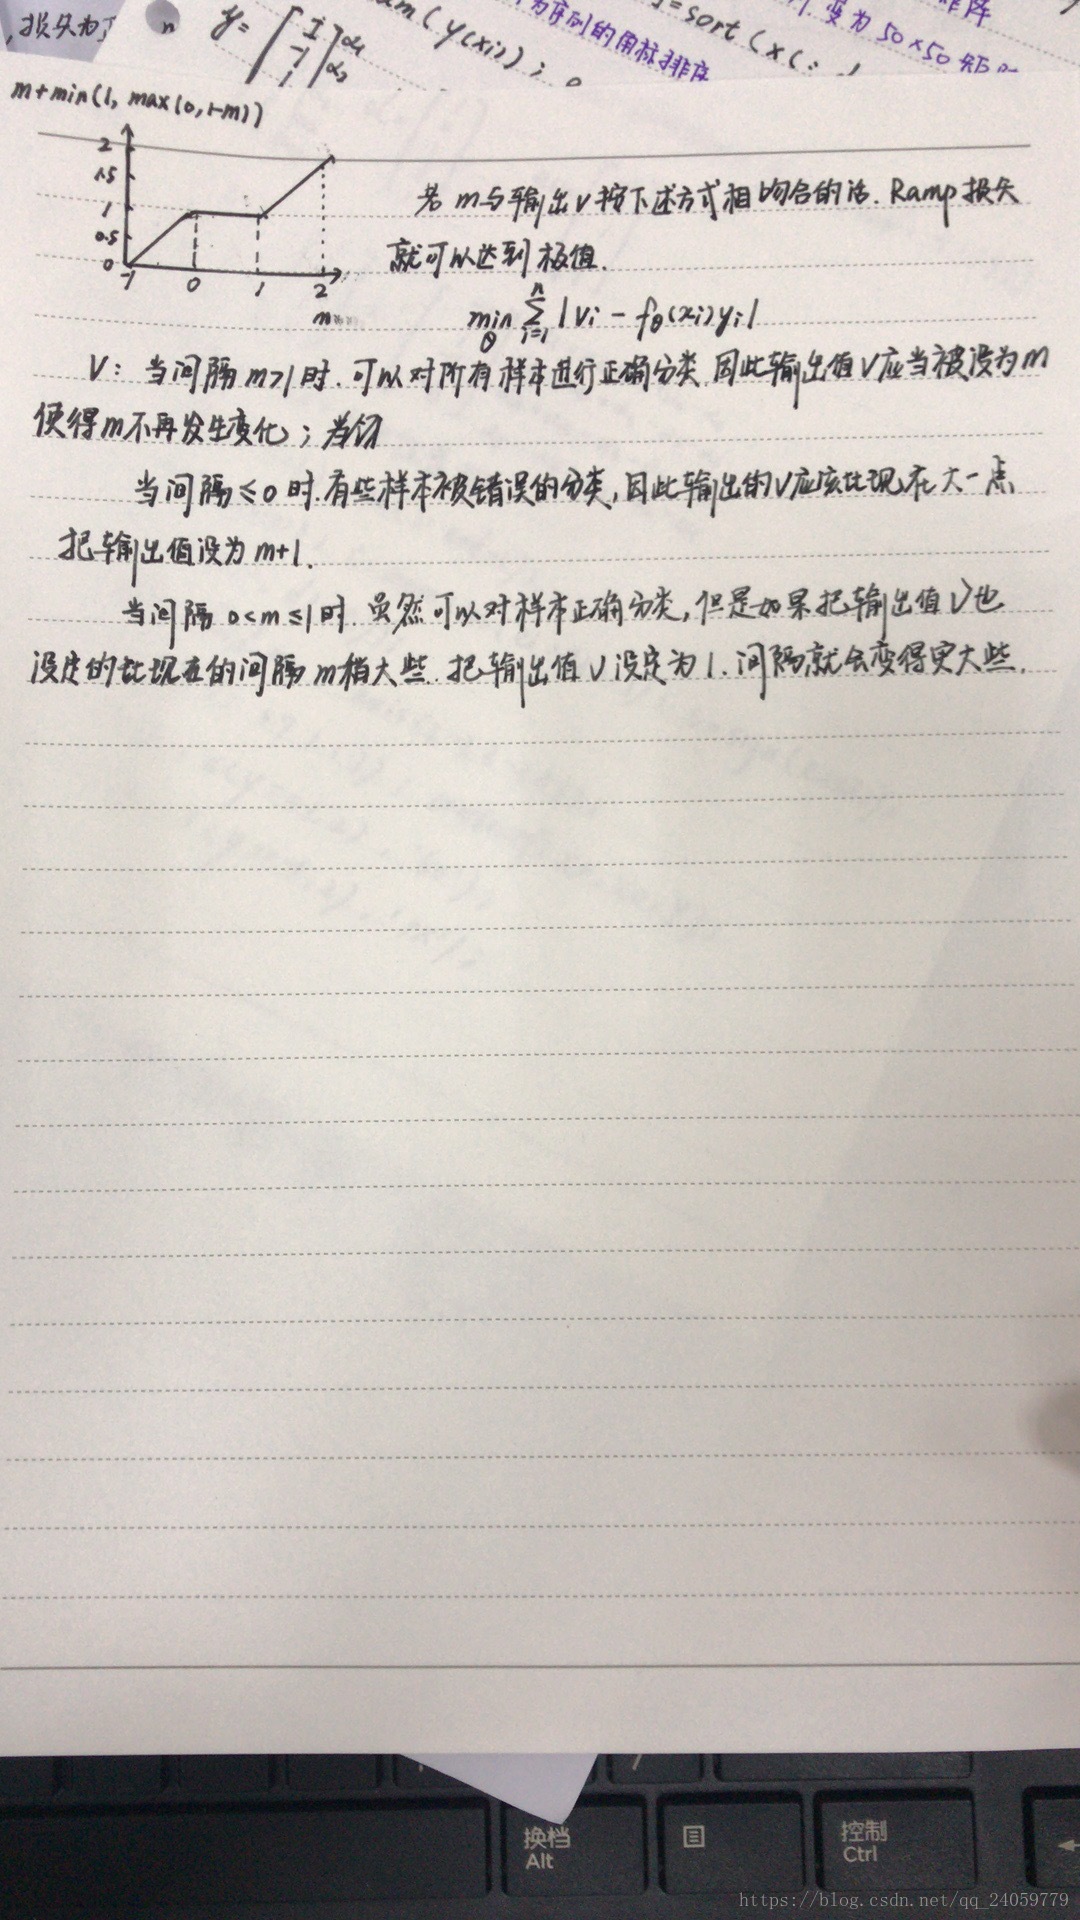 损失为了 n y= 1 -1 1 α1 α2 (y(xi)); 为序列的角标排序 =sort(x(: 变为50×50矩
m+min(1, max(0,1-m))
2
1.5
1
0.5
0
-1 0 1 2
m
若m与输出v按下述方式相吻合的话. Ramp损失
就可以达到极值.
min θ n Σ i=1 |vi - fθ(xi)yi|
V: 当间隔m>1时.可以对所有样本进行正确分类.因此输出值V应当被设为m
使得m不再发生变化;
当间隔≤0时.有些样本被错误的分类,因此输出的V应该比现在大一点
把输出值设为m+1.
当间隔0<m≤1时.虽然可以对样本正确分类,但是如果把输出值V也
设定的比现在的间隔m稍大些.把输出值V设定为1.间隔就会变得更大些.
换档
Alt
控制
Ctrl
https://blog.csdn.net/qq_24059779